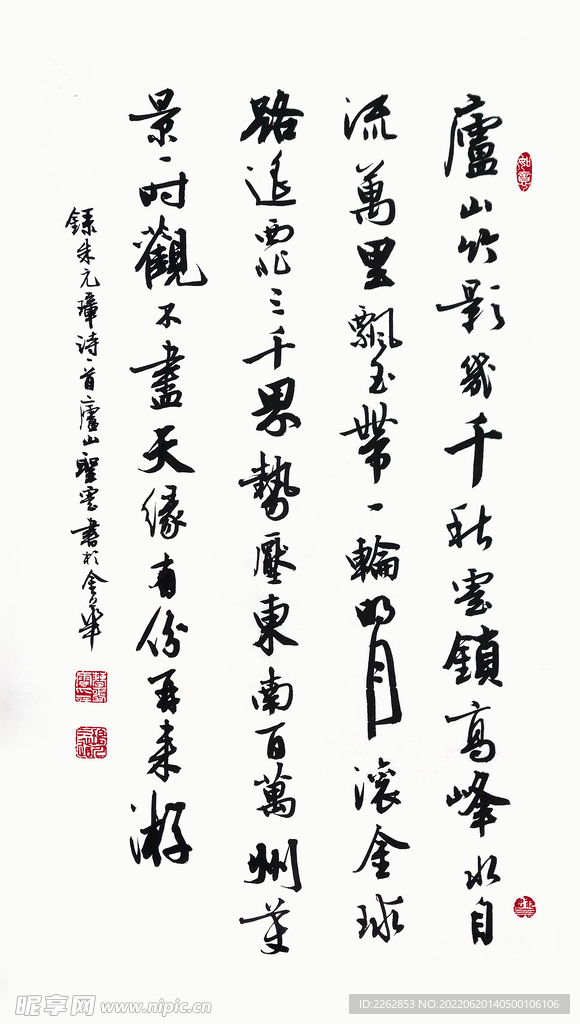 廬山竹影幾千秋雲鎖高峰水自
流萬里飄玉帶一輪明月滾金球
路遙西北三千界勢壓東南百萬州美
景一时觀不盡天緣有份再来游
錄朱元璋詩一首廬山聖雲書於金華
昵享网 www.nipic.cn
ID:2262853 NO:20220620140500106106